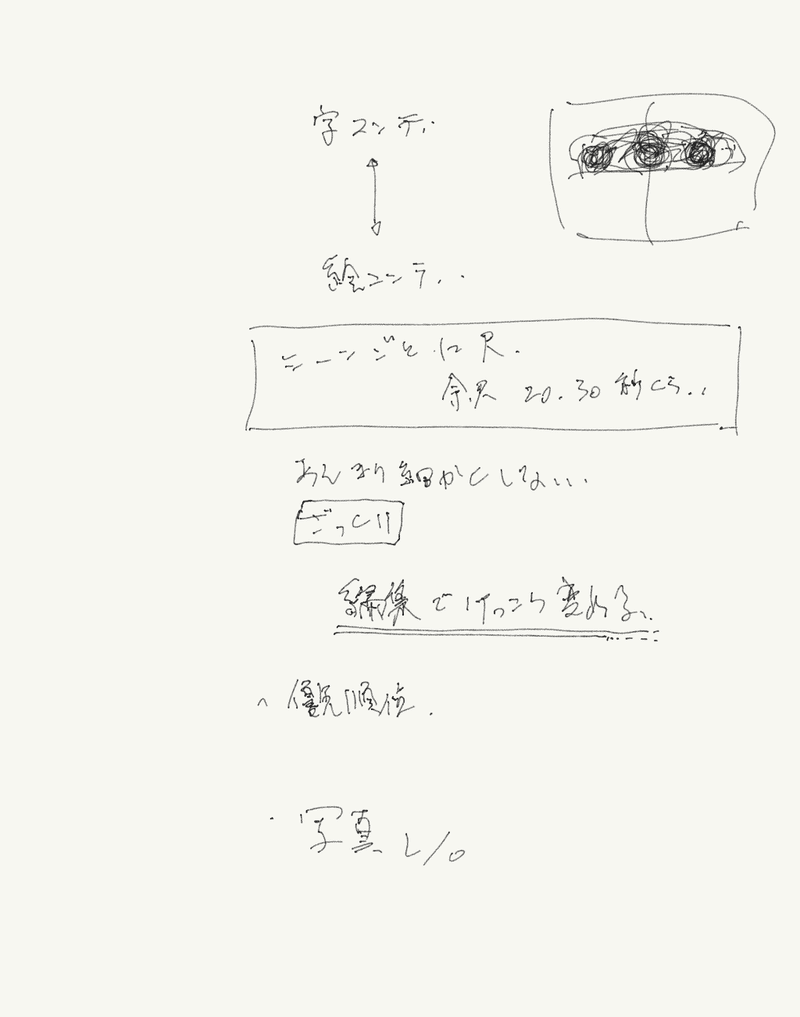 字コンテ.
絵コンテ..
シーンごとに尺.
余尺 20.30秒くら..
あんまり細かくしない..
ざっくり
編集でけっこう変わる..
優先順位.
・写真 L/O